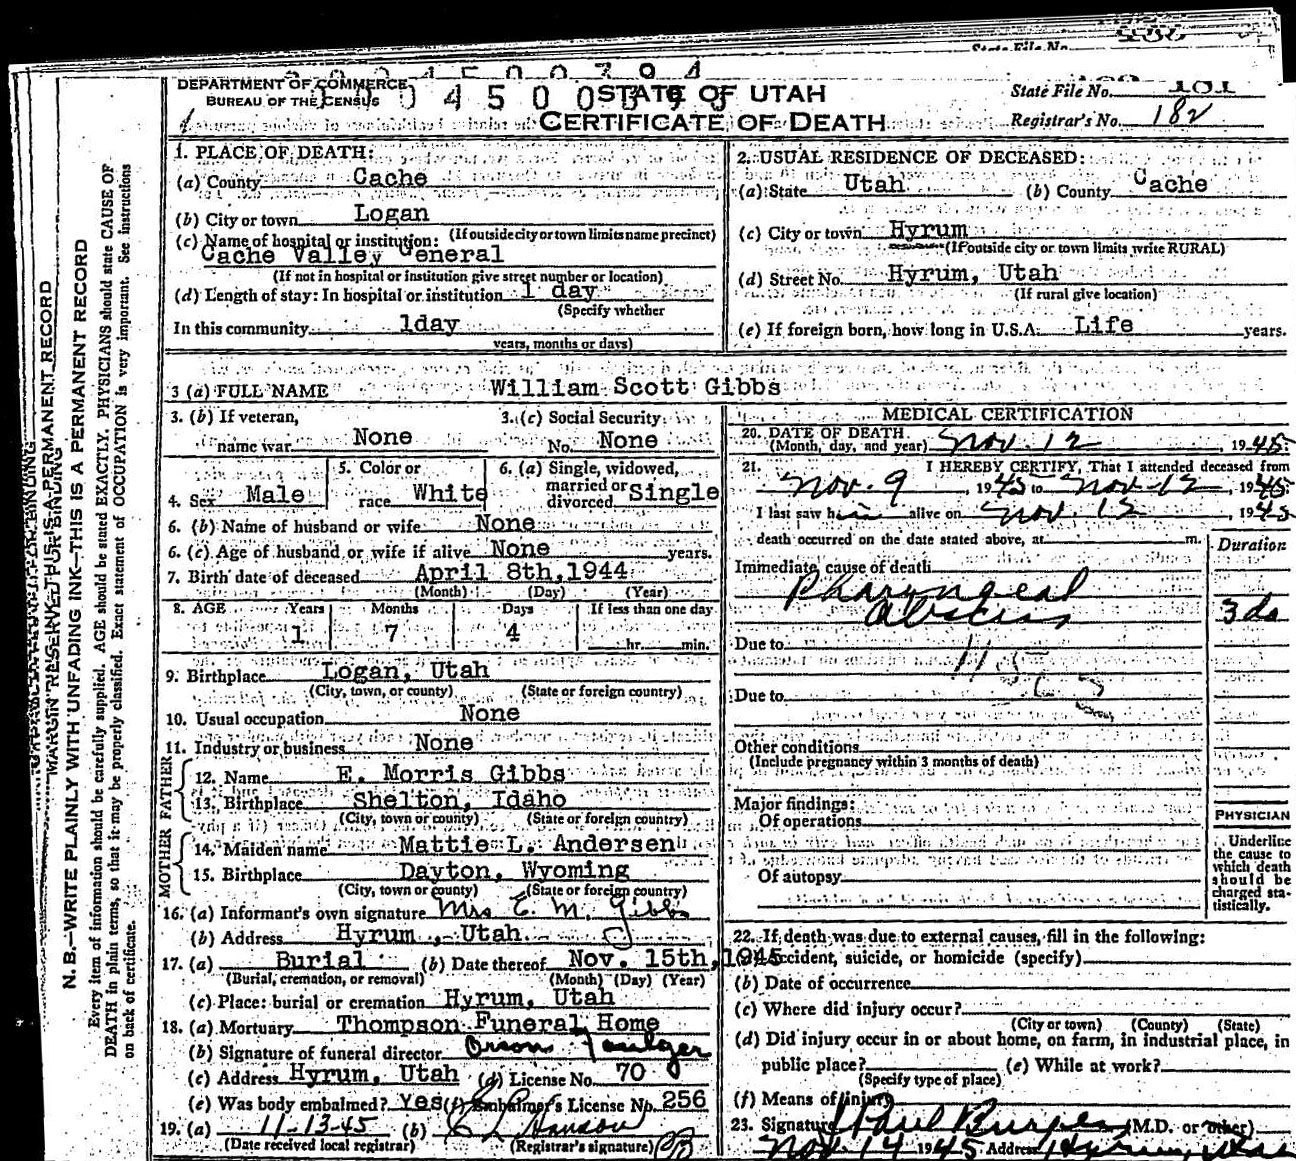 DEPARTMENT OF COMMERCE
BUREAU OF THE CENSUS
STATE OF UTAH
CERTIFICATE OF DEATH
State File No. 101
Registrar's No. 182
1. PLACE OF DEATH:
(a) County Cache
(b) City or town Logan
(If outside city or town limits name precinct)
(c) Name of hospital or institution:
Cache Valley General
(If not in hospital or institution give street number or location)
(d) Length of stay: In hospital or institution 1 day
(Specify whether
In this community 1day
years, months or days)
2. USUAL RESIDENCE OF DECEASED:
(a) State Utah (b) County Cache
(c) City or town Hyrum
(If outside city or town limits write RURAL)
(d) Street No. Hyrum, Utah
(If rural give location)
(e) If foreign born, how long in U.S.A. Life years.
3 (a) FULL NAME William Scott Gibbs
3. (b) If veteran, name war None
3. (c) Social Security No. None
4. Sex Male
5. Color or race White
6. (a) Single, widowed, married or divorced Single
6. (b) Name of husband or wife None
6. (c) Age of husband or wife if alive None years.
7. Birth date of deceased April 8th, 1944
(Month) (Day) (Year)
8. AGE Years Months Days If less than one day
1 7 4 hr. min.
9. Birthplace Logan, Utah
(City, town, or county) (State or foreign country)
10. Usual occupation None
11. Industry or business None
FATHER
12. Name E. Morris Gibbs
13. Birthplace Shelton, Idaho
(City, town or county) (State or foreign country)
MOTHER
14. Maiden name Mattie L. Andersen
15. Birthplace Dayton, Wyoming
(City, town or county) (State or foreign country)
16. (a) Informant's own signature Mrs E. M. Gibbs
(b) Address Hyrum, Utah
17. (a) Burial (b) Date thereof Nov. 15th, 1945
(Burial, cremation, or removal) (Month) (Day) (Year)
(c) Place: burial or cremation Hyrum, Utah
18. (a) Mortuary Thompson Funeral Home
(b) Signature of funeral director Orson
(c) Address Hyrum, Utah (d) License No. 70
(e) Was body embalmed? Yes (f) Embalmer's License No. 256
19. (a) 11-13-45 (b)
(Date received local registrar) (Registrar's signature)
MEDICAL CERTIFICATION
20. DATE OF DEATH Nov. 12, 1945.
(Month, day, and year)
21. I HEREBY CERTIFY, That I attended deceased from
Nov. 9, 1945 to Nov. 12, 1945.
I last saw him alive on Nov. 12, 1945
death occurred on the date stated above, at m.
Duration
Immediate cause of death
Pharyngeal
Abscess 3 da
Due to
Due to
Other conditions
(Include pregnancy within 3 months of death)
Major findings:
Of operations
Of autopsy
PHYSICIAN
Underline
the cause to
which death
should be
charged sta-
tistically.
22. If death was due to external causes, fill in the following:
(a) Accident, suicide, or homicide (specify)
(b) Date of occurrence
(c) Where did injury occur?
(City or town) (County) (State)
(d) Did injury occur in or about home, on farm, in industrial place, in
public place? (e) While at work?
(Specify type of place)
(f) Means of injury
23. Signature Paul (M.D. or other)
Nov. 14 1945 Address Hyrum, Utah
N. B.—WRITE PLAINLY WITH UNFADING INK—THIS IS A PERMANENT RECORD
Every item of information should be carefully supplied. AGE should be stated EXACTLY. PHYSICIANS should state CAUSE OF
DEATH in plain terms, so that it may be properly classified. Exact statement of OCCUPATION is very important. See instructions
on back of certificate.